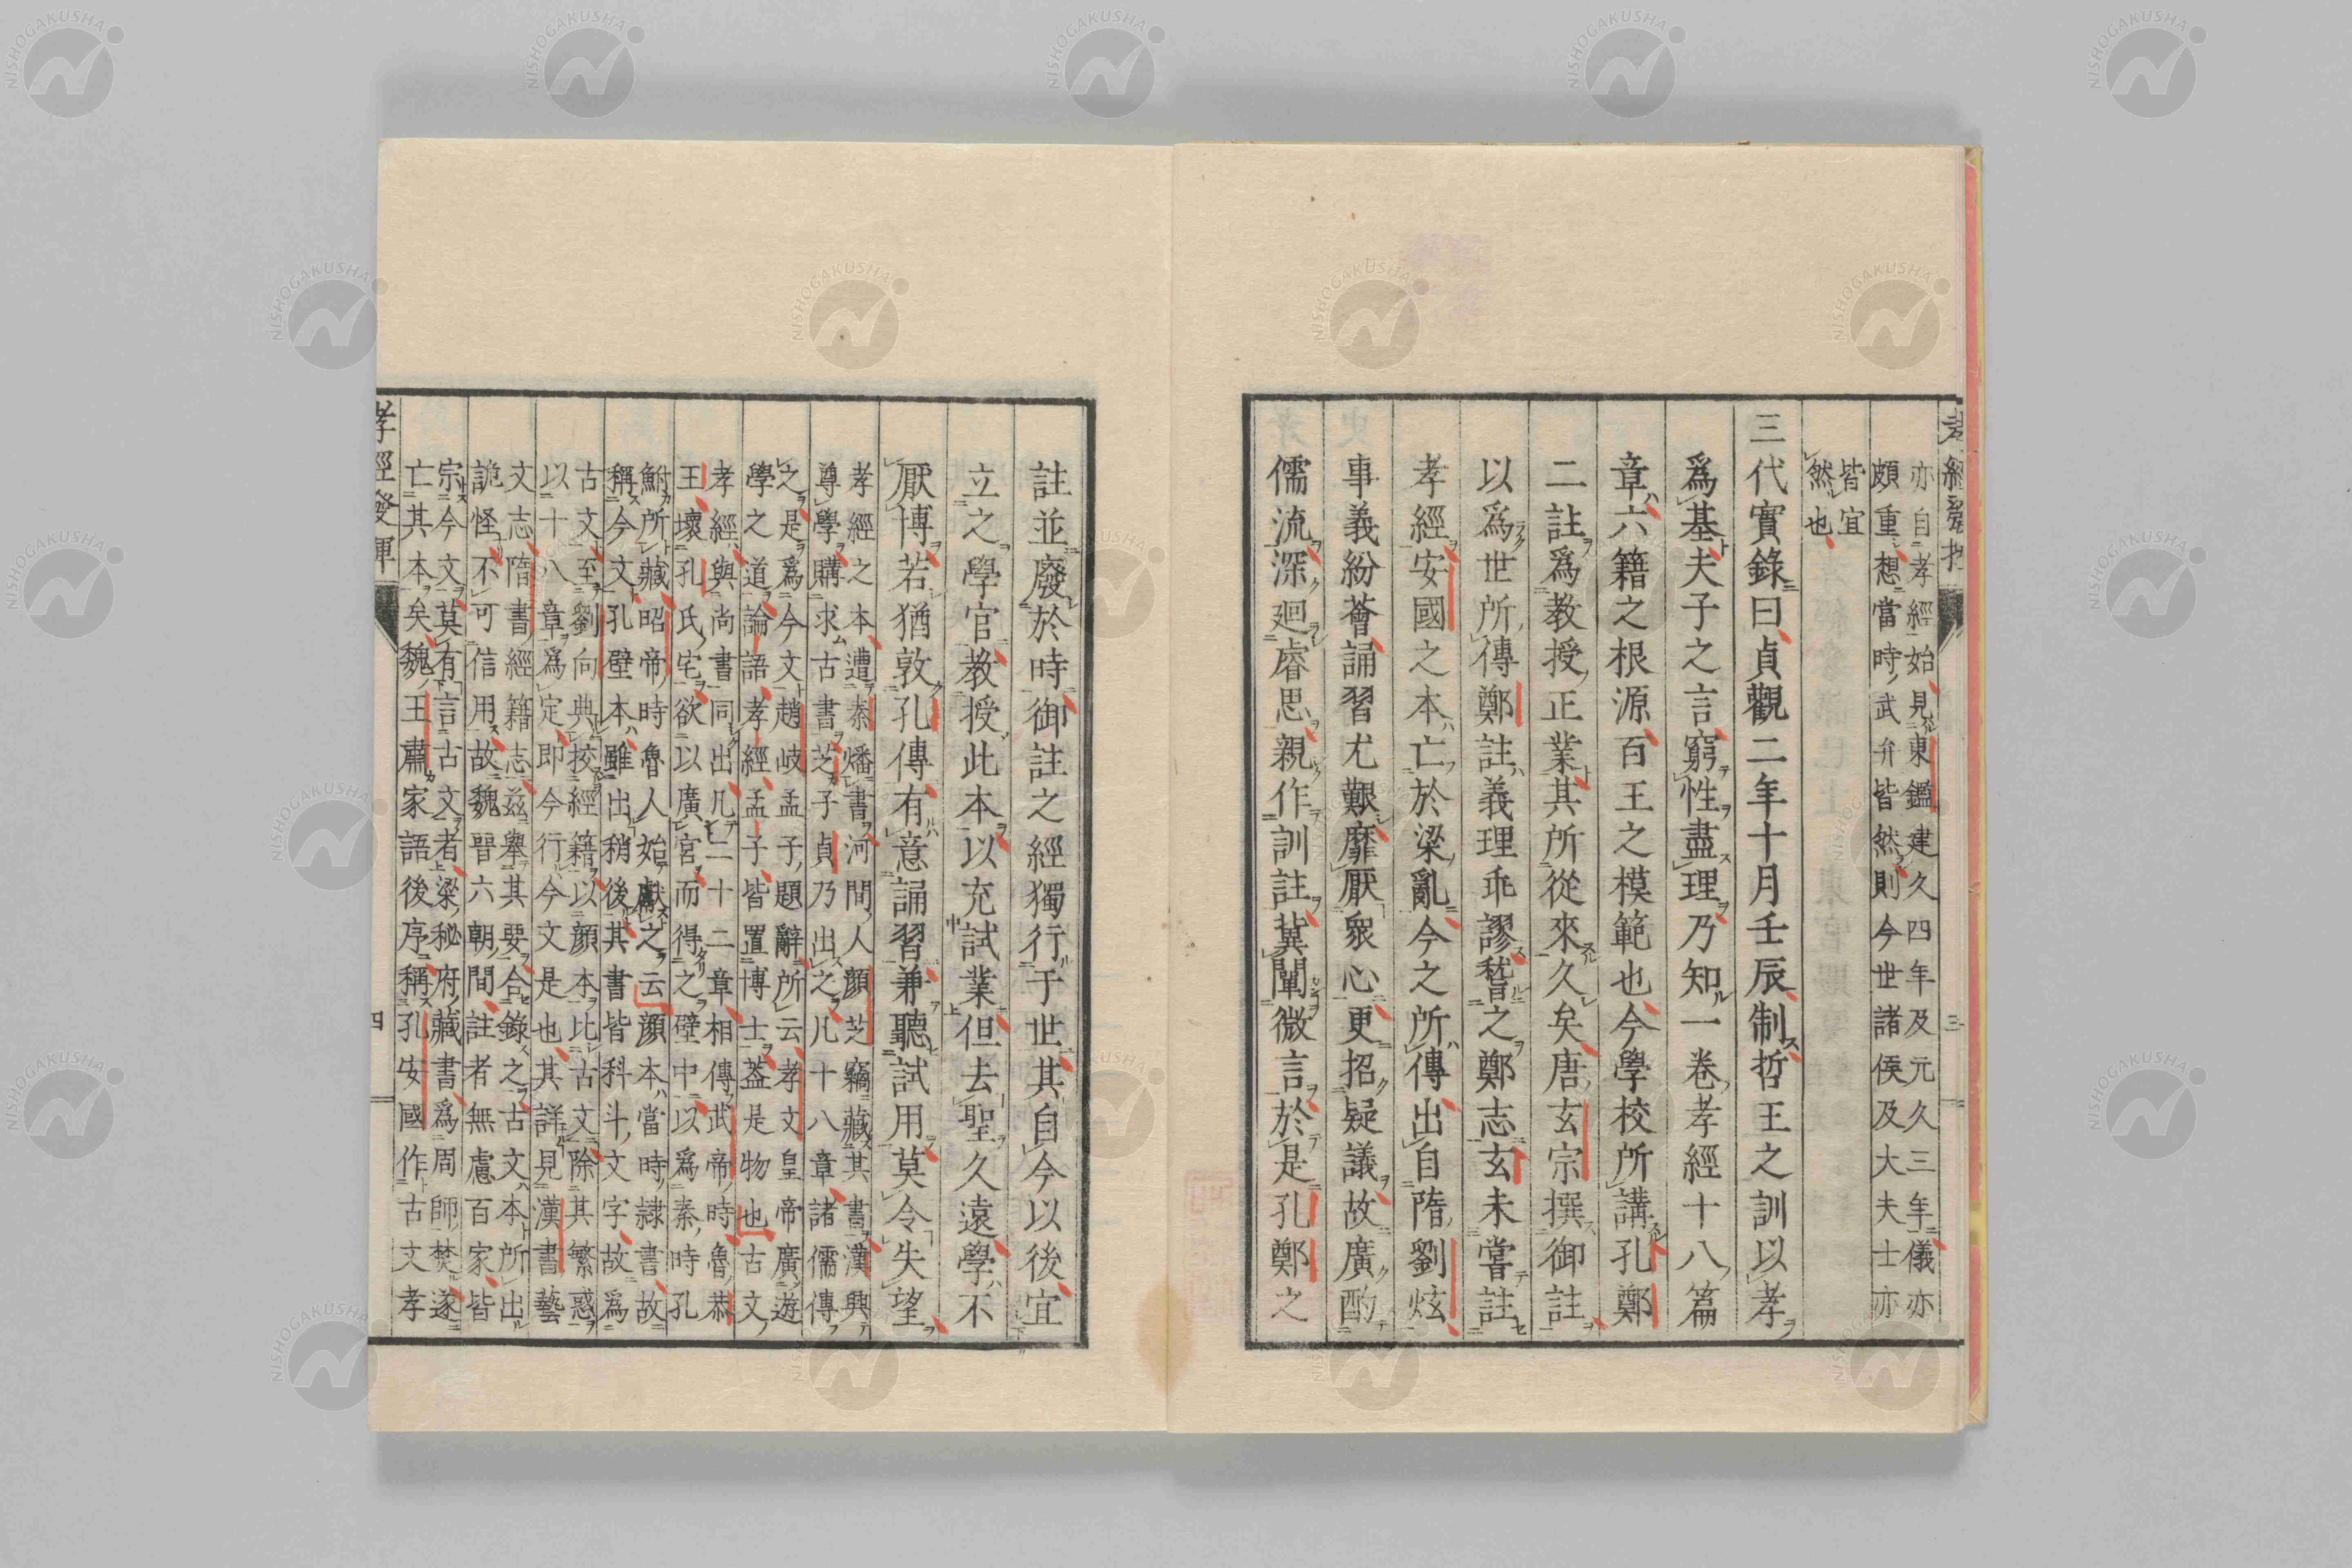 亦自孝經始見東鑑建久四年及元久三年儀亦
頗重想當時武弁皆然則今世諸侯及大夫士亦
皆宜
然也
三代實錄曰貞觀二年十月壬辰制哲王之訓以孝
爲基夫子之言窮性盡理乃知一卷孝經十八篇
章六籍之根源百王之模範也今學校所講孔鄭
二註爲教授正業其所從來久矣唐玄宗撰御註
以爲世所傳鄭註義理乖謬稽之鄭志玄未嘗註
孝經安國之本亡於梁亂今之所傳出自隋劉炫
事義紛薈誦習尤艱靡厭衆心更招疑議故廣酌
儒流深廻睿思親作訓註冀闡微言於是孔鄭之
註並廢於時御註之經獨行于世其自今以後宜
立之學官教授此本以充試業但去聖久遠學不
厭博若猶敦孔傳有意誦習兼聽試用莫令失望
孝經之本遭秦燔書河間人顏芝竊藏其書漢興
尊學購求古書芝子貞乃出之凡十八章諸儒傳
之是爲今文趙岐孟子題辭所云孝文皇帝廣遊
學之道論語孝經孟子皆置博士蓋是物也古文
孝經與尚書同出凡二十二章相傳武帝時魯恭
王壞孔氏宅欲以廣宮而得之壁中以爲秦時孔
鮒所藏昭帝時魯人始獻之云顏本當時隸書故
稱今文孔壁本雖出稍後其書皆科斗文字故爲
古文至劉向典挍經籍以顏本比古文除其繁惑
以十八章爲定即今行今文是也其詳見漢書藝
文志隋書經籍志茲舉其要合錄之古文本所出
詭怪不可信用故魏晉六朝間註者無慮百家皆
宗今文莫有言古文者梁秘府藏書爲周師焚遂
亡其本矣魏王肅家語後序稱孔安國作古文孝
孝經發揮
四
NISHOGAKUSHA